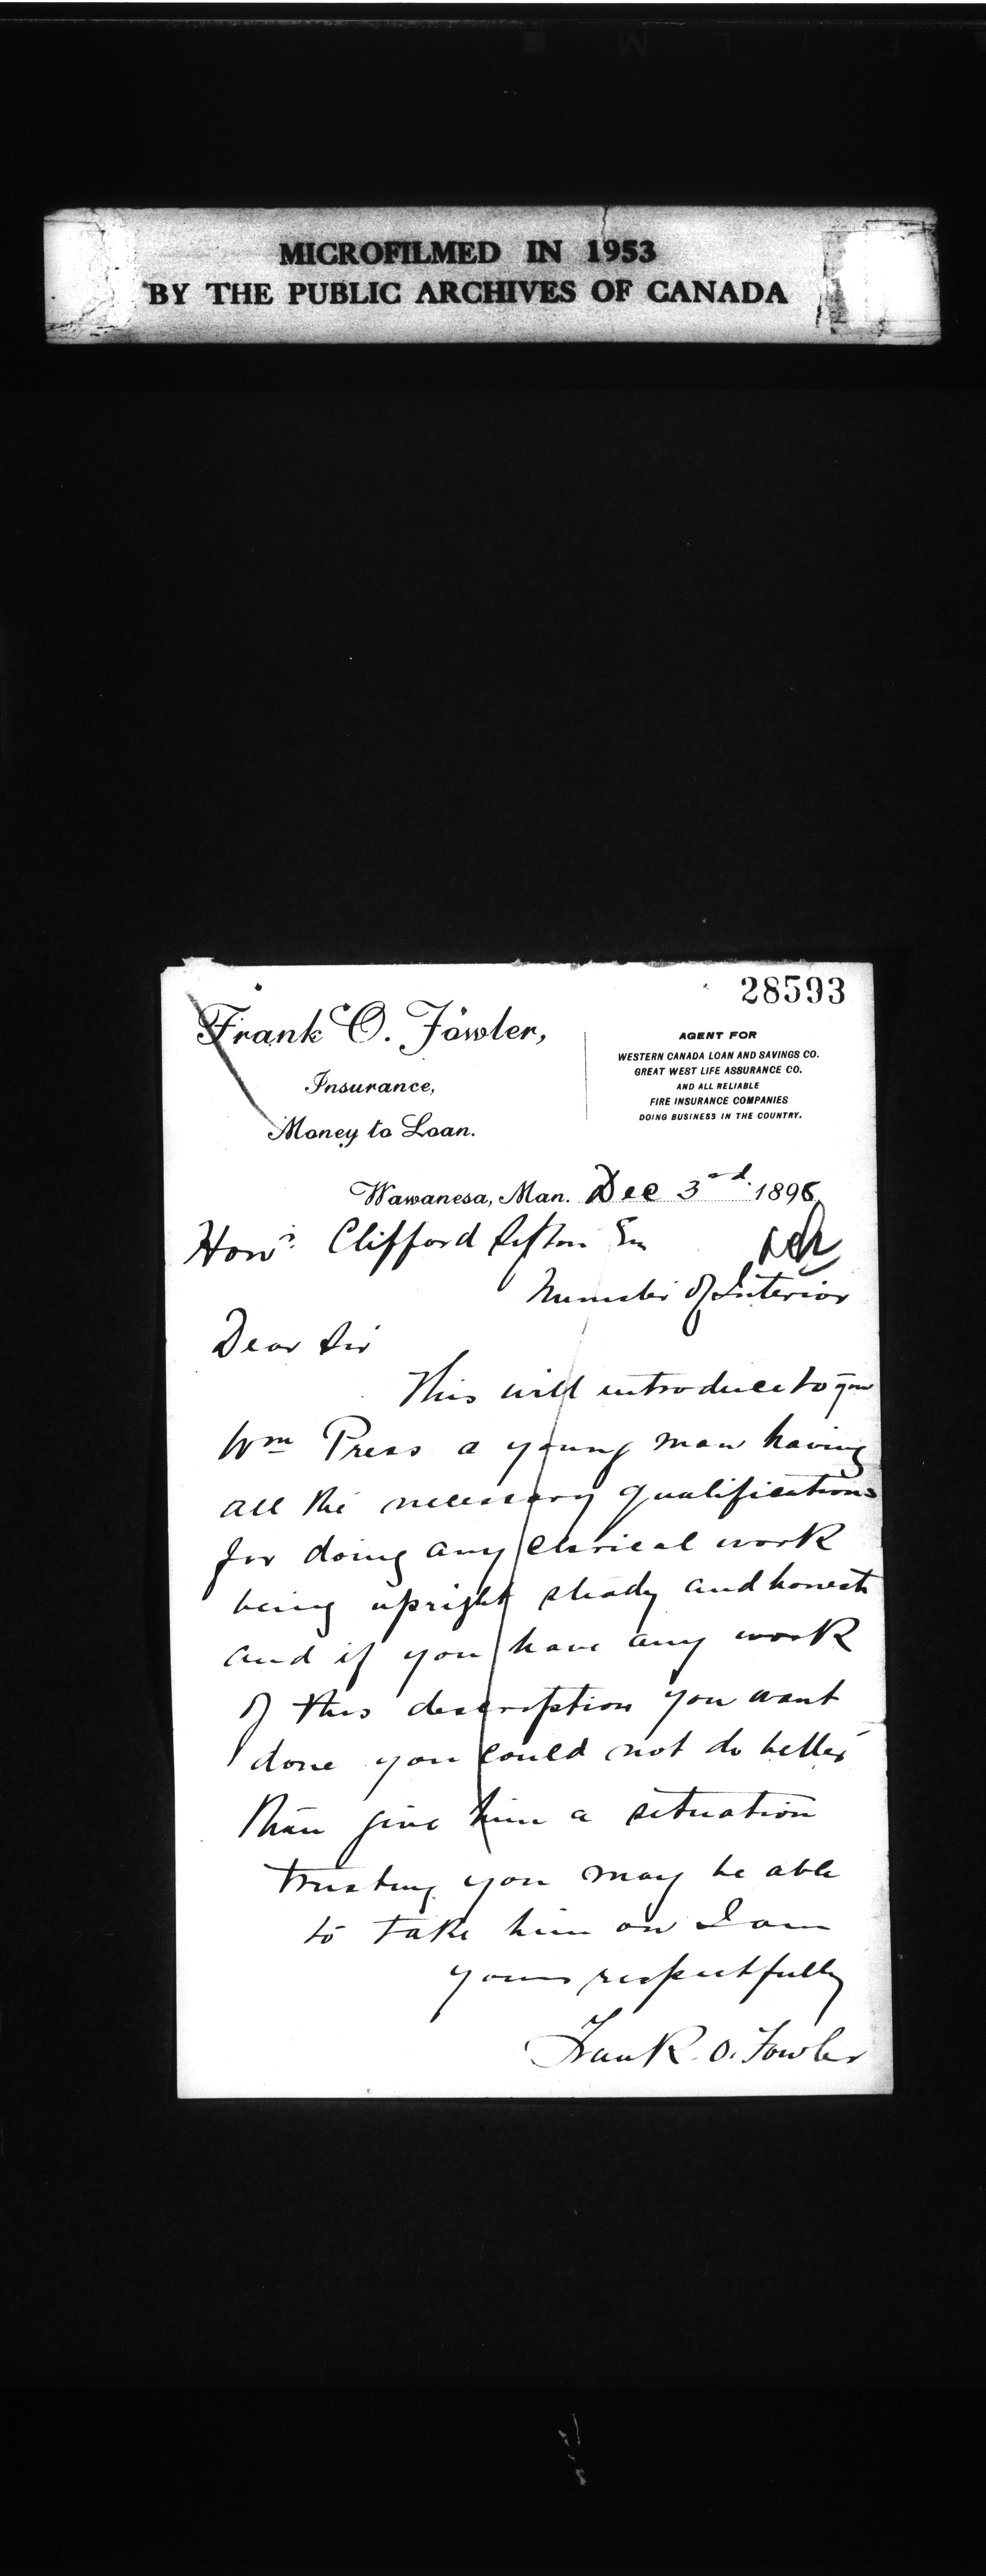 MICROFILMED IN 1953
BY THE PUBLIC ARCHIVES OF CANADA
28593
Frank O. Fowler,
Insurance,
Money to Loan.
AGENT FOR
WESTERN CANADA LOAN AND SAVINGS CO.
GREAT WEST LIFE ASSURANCE CO.
AND ALL RELIABLE
FIRE INSURANCE COMPANIES
DOING BUSINESS IN THE COUNTRY.
Wawanesa, Man. Dec 3rd 1896
Clifford Sifton
Minister of Interior
Dear Sir
This will introduce to you
Wm Press a young man having
all the necessary qualifications
for doing any clerical work
being upright steady and honest
and if you have any work
of this description you want
done you could not do better
than give him a situation
trusting you may be able
to take him on I am
yours respectfully
Frank O. Fowler